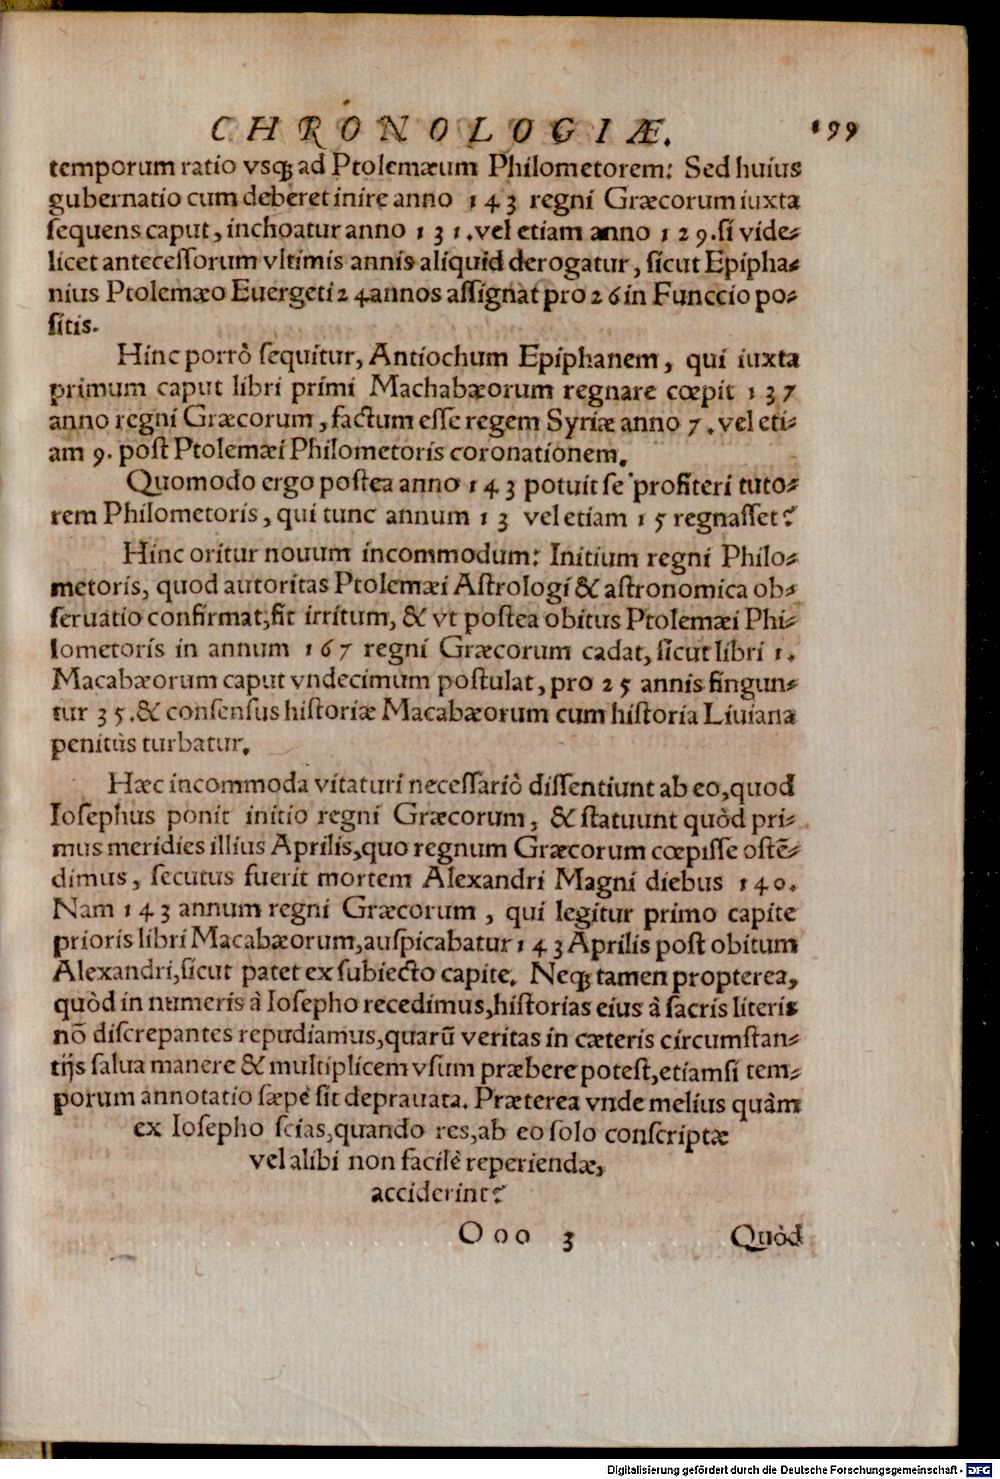 CHRONOLOGIÆ. 199
temporum ratio vsqꝫ ad Ptolemæum Philometorem: Sed huius
gubernatio cum deberet inire anno 143 regni Græcorum iuxta
ſequens caput, inchoatur anno 131. vel etiam anno 129. ſi vide⸗
licet anteceſſorum vltimis annis aliquid derogatur, ſicut Epipha⸗
nius Ptolemæo Euergeti 24 annos aſſignat pro 26 in Funccio po⸗
ſitis.
Hinc porrò ſequitur, Antiochum Epiphanem, qui iuxta
primum caput libri primi Machabæorum regnare cœpit 137
anno regni Græcorum, factum eſſe regem Syriæ anno 7. vel eti⸗
am 9. poſt Ptolemæi Philometoris coronationem.
Quomodo ergo poſtea anno 143 potuit ſe profiteri tuto⸗
rem Philometoris, qui tunc annum 13 vel etiam 15 regnaſſet?
Hinc oritur nouum incommodum: Initium regni Philo⸗
metoris, quod autoritas Ptolemæi Aſtrologi & aſtronomica ob⸗
ſeruatio confirmat, fit irritum, & vt poſtea obitus Ptolemæi Phi⸗
lometoris in annum 167 regni Græcorum cadat, ſicut libri 1.
Macabæorum caput vndecimum poſtulat, pro 25 annis fingun⸗
tur 35. & conſenſus hiſtoriæ Macabæorum cum hiſtoria Liuiana
penitùs turbatur.
Hæc incommoda vitaturi neceſſariò diſſentiunt ab eo, quod
Ioſephus ponit initio regni Græcorum, & ſtatuunt quòd pri⸗
mus meridies illius Aprilis, quo regnum Græcorum cœpiſſe oſtẽ⸗
dimus, ſecutus fuerit mortem Alexandri Magni diebus 140.
Nam 143 annum regni Græcorum, qui legitur primo capite
prioris libri Macabæorum, auſpicabatur 143 Aprilis poſt obitum
Alexandri, ſicut patet ex ſubiecto capite. Neqꝫ tamen propterea,
quòd in numeris à Ioſepho recedimus, hiſtorias eius à ſacris literis
nõ diſcrepantes repudiamus, quarũ veritas in cæteris circumſtan⸗
tijs ſalua manere & multiplicem vſum præbere poteſt, etiamſi tem⸗
porum annotatio ſæpè ſit deprauata. Præterea vnde melius quàm
ex Ioſepho ſcias, quando res, ab eo ſolo conſcriptæ
vel alibi non facilè reperiendæ,
acciderint?
Ooo 3 Quòd
Digitalisierung gefördert durch die Deutsche Forschungsgemeinschaft - DFG